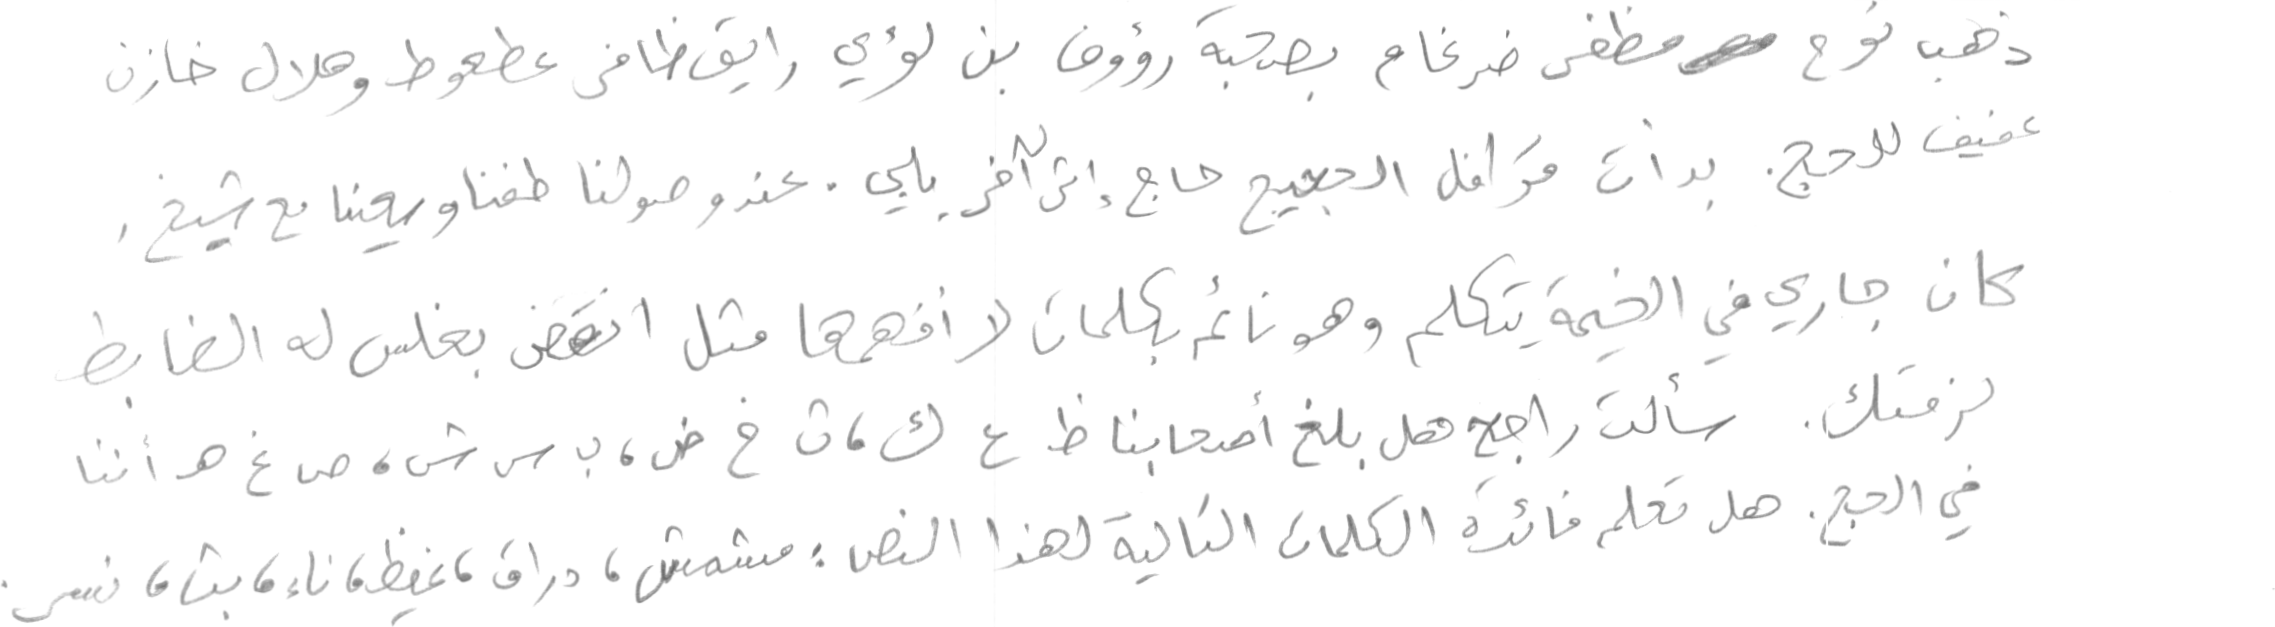 ذهب نوح مظفر ضرغام بصحبة رؤوف بن لؤي رايق ظافر عطعوط وهلال خازن
عفيف للحج. بدأت قوافل الحجيج حاج إثر آخر يلبي. عند وصولنا طفنا وسعينا مع شيخ،
كان جاري في الخيمة يتكلم وهو نائم بكلمات لا أفهمها مثل انقض بغلس له الضابط
لزمتك. سألت راجح هل بلغ أصحابنا ظ ع ك، ث خ ض، ب س ش، ص غ هـ أننا
في الحج. هل تعلم فائدة الكلمات التالية لهذا النص: مشمش، دراق، غيظ، ناء، بث، نسر.